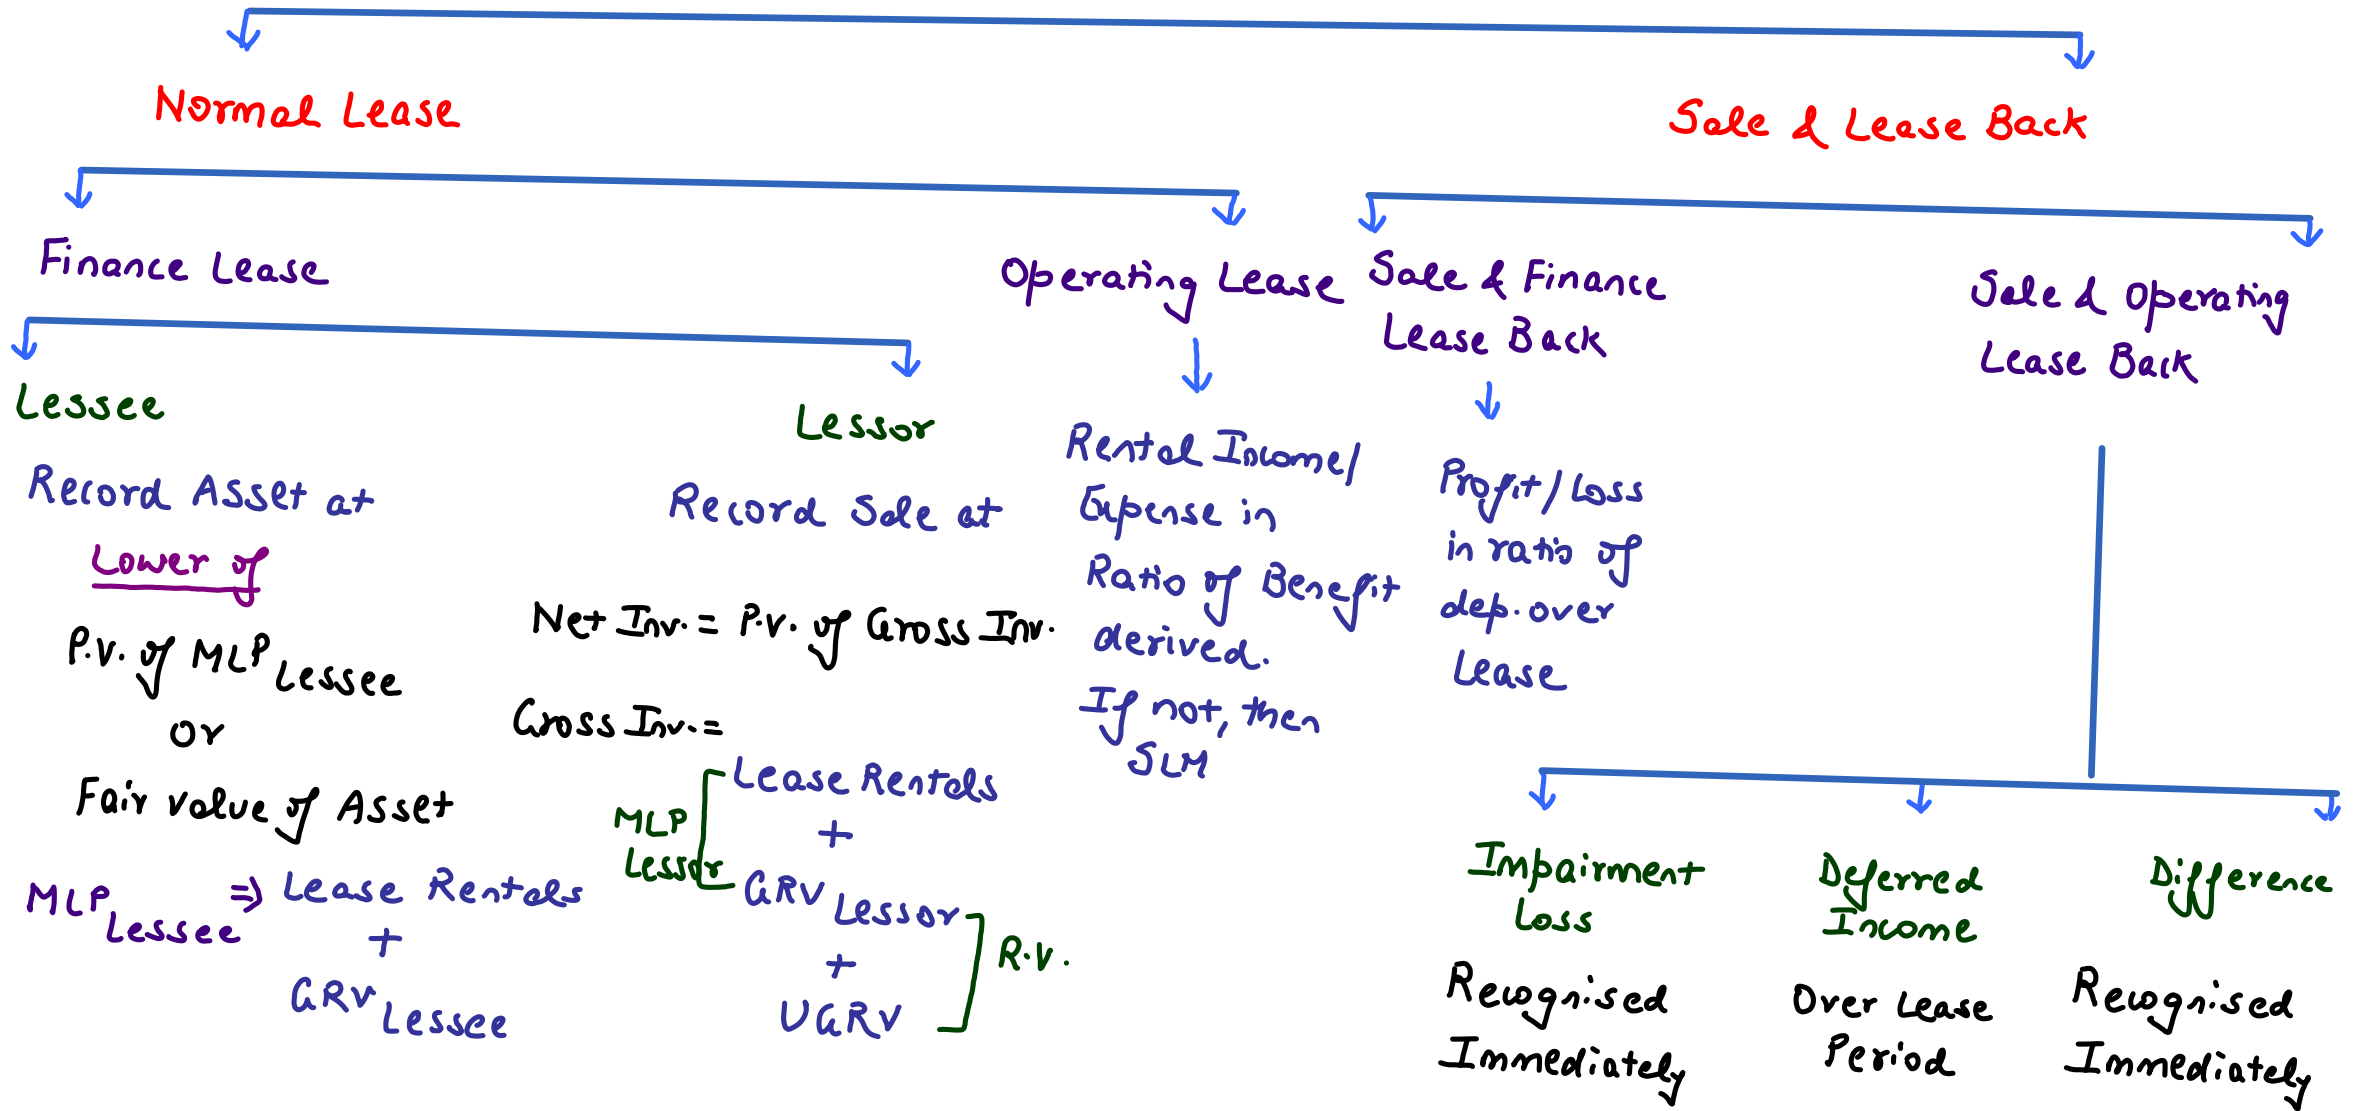 Normal Lease
Sale & Lease Back
Finance Lease
Operating Lease
Sale & Finance
Lease Back
Sale & Operating
Lease Back
Lessee
Record Asset at
Lower of
P.V. of MLP Lessee
or
Fair value of Asset
MLP Lessee ⇒ Lease Rentals
+
GRV Lessee
Lessor
Record Sale at
Net Inv. = P.V. of Gross Inv.
Gross Inv. =
Lease Rentals
+
MLP
Lessor
GRV Lessor
+
UGRV
R.V.
Rental Income/
Expense in
Ratio of Benefit
derived.
If not, then
SLM
Profit/Loss
in ratio of
dep. over
Lease
Impairment
Loss
Recognised
Immediately
Deferred
Income
Over Lease
Period
Difference
Recognised
Immediately